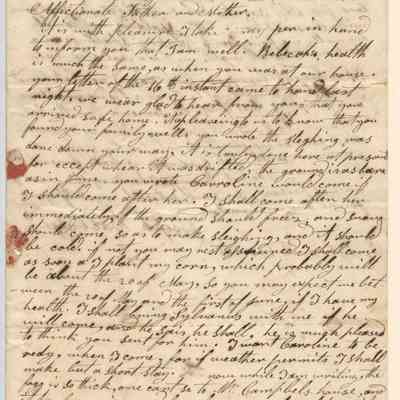 Affectionate Father and Mother,
it is with pleasure I take my pen in hand
to inform you that I am well. Rebecahs, health
is much the same, as when you was at our house.
your letter of the 16th instant came to hand last
night, we wear glad to hear from you that you
arrived safe home. it pleaseing to us to know that you
found your family well you wrote the sleghing was
done down your way, it is intirely done here at present
for except whear it was drifted, the ground is as bare
as in June. you wrote Carroline would come if
I should come after her. I shall come after her
immediately if the ground should freez, and snow
should come, so as to make sleighing, and it should
be cold. if not you may rest assured I shall come
as soon as I plant my corn, which probably will
be about the 20 of May, so you may expect me bet
ween the 20 of May and the first of June, if I have my
health, I shall bring Sylvanus with me if he
will come, and he says he shall. he is much pleased
to think you sent for him. I want Caroline to be
redy, when I come, for if weather permits I shall
make but a short stay. now while I am writing, the
fog is so thick, one cant se to Mr. Campbels house, and